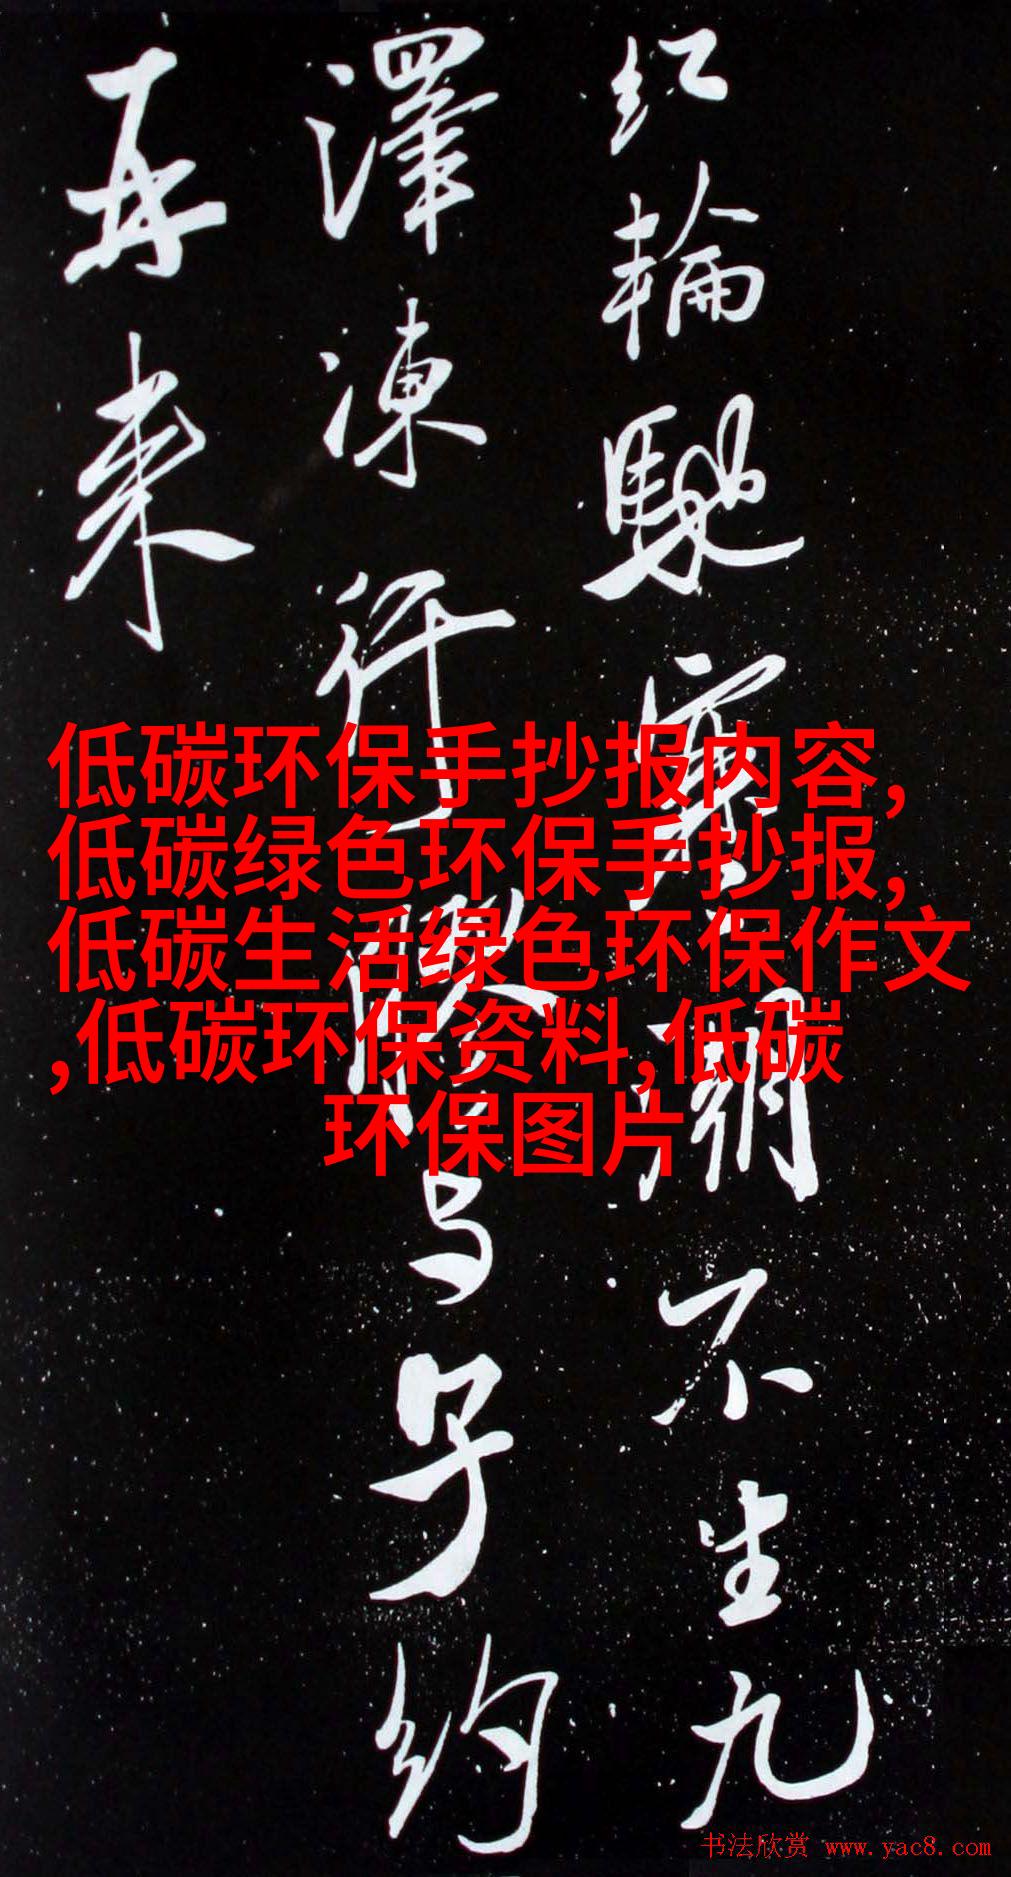 紅輪馳不生九
澤凍行膠与子約
再来
低碳环保手抄报内容,
低碳绿色环保手抄报,
低碳生活绿色环保作文
,低碳环保资料,低碳
环保图片
书法欣赏 www.yac8.com